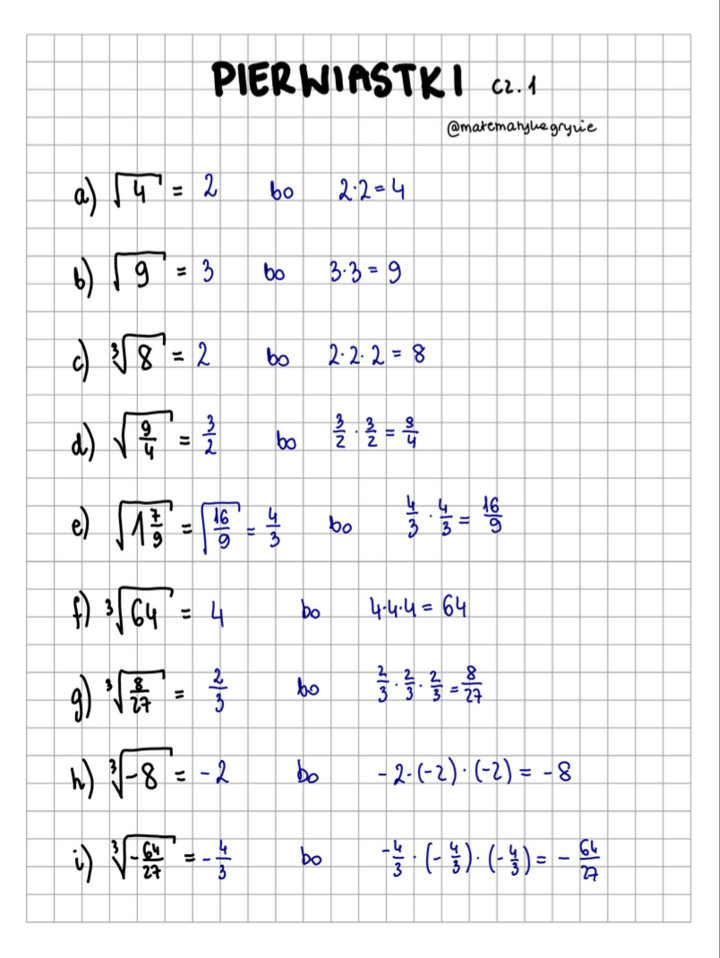 PIERWIASTKI cz. 1
@matematykagryzie
a) √4 = 2 bo 2·2=4
b) √9 = 3 bo 3·3 = 9
c) ∛8 = 2 bo 2·2·2 = 8
d) √(9/4) = 3/2 bo 3/2 · 3/2 = 9/4
e) √(1 7/9) = √(16/9) = 4/3 bo 4/3 · 4/3 = 16/9
f) ∛64 = 4 bo 4·4·4 = 64
g) ∛(8/27) = 2/3 bo 2/3 · 2/3 · 2/3 = 8/27
h) ∛-8 = -2 bo -2·(-2)·(-2) = -8
i) ∛(-64/27) = -4/3 bo -4/3 · (-4/3) · (-4/3) = - 64/27